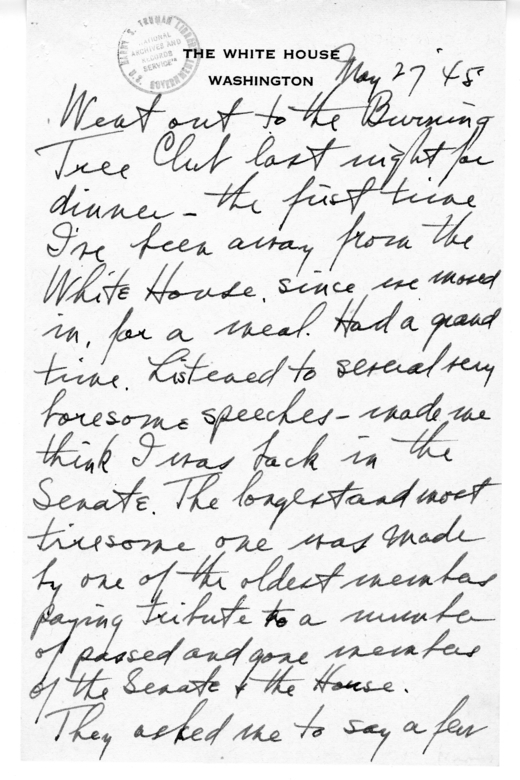 HARRY S. TRUMAN LIBRARY
NATIONAL
ARCHIVES AND
RECORDS
SERVICE
U.S. GOVERNMENT
THE WHITE HOUSE
WASHINGTON
May 27 '45
Went out to the Burning
Tree Club last night for
dinner - the first time
I've been away from the
White House, since we moved
in, for a meal. Had a grand
time. Listened to several very
boresome speeches - made me
think I was back in the
Senate. The longest and most
tiresome one was made
by one of the oldest members
paying tribute to a number
of passed and gone members
of the Senate & the House.
They asked me to say a few